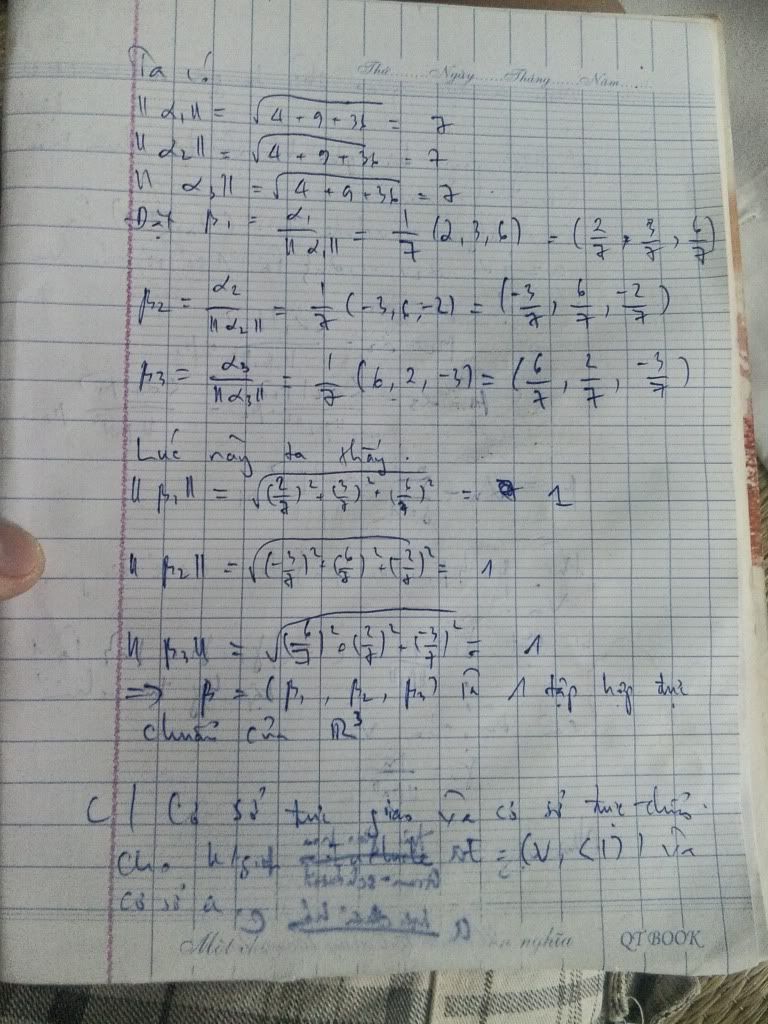 Thứ........Ngày........Tháng........Năm........
Ta có
||α₁|| = √(4 + 9 + 36) = 7
||α₂|| = √(4 + 9 + 36) = 7
||α₃|| = √(4 + 9 + 36) = 7
Đặt β₁ = α₁/||α₁|| = 1/7 (2, 3, 6) = (2/7, 3/7, 6/7)
β₂ = α₂/||α₂|| = 1/7 (-3, 6, -2) = (-3/7, 6/7, -2/7)
β₃ = α₃/||α₃|| = 1/7 (6, 2, -3) = (6/7, 2/7, -3/7)
Lúc này ta thấy.
||β₁|| = √((2/7)² + (3/7)² + (6/7)²) = 1
||β₂|| = √((-3/7)² + (6/7)² + (-2/7)²) = 1
||β₃|| = √((6/7)² + (2/7)² + (-3/7)²) = 1
=> β = (β₁, β₂, β₃) là 1 tập hợp trực
chuẩn của ℝ³
C / Cơ sở trực giao và cơ sở trực chuẩn.
Cho k/gian = (V, <|>) và
cơ sở a
Một nghĩa QT BOOK